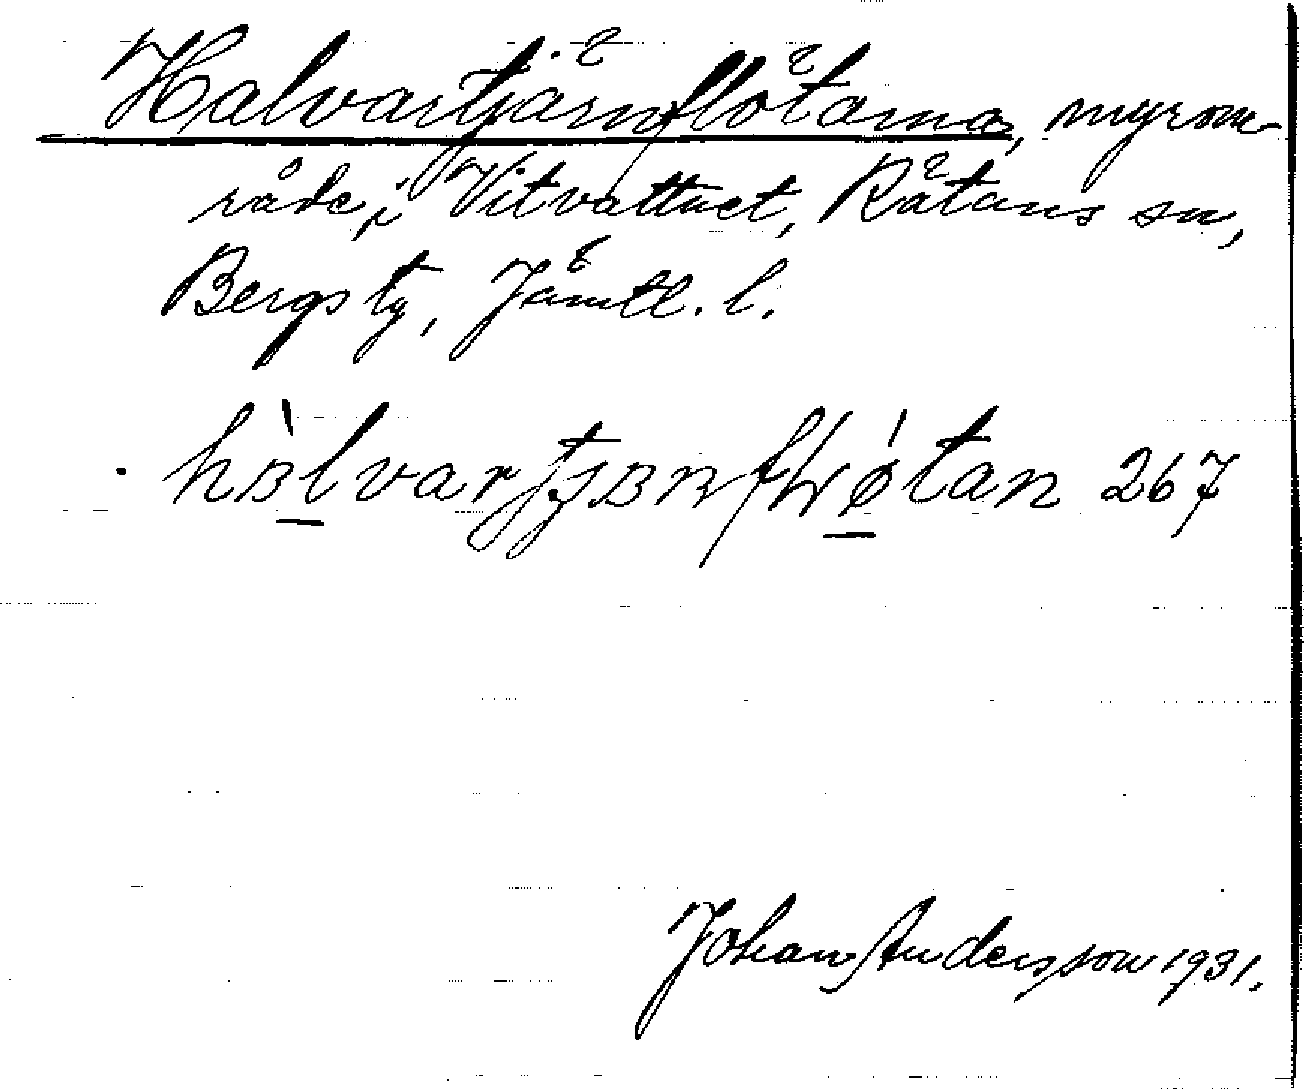 Halvartjärnflötarna, myrom-
råde i Vitvattnet, Rätans sn,
Bergs tg, Jämtl. l.
267
Johan Andersson 1931.